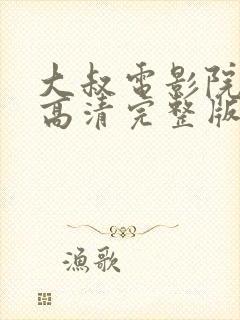 大叔電影院
高清完整版
漁歌